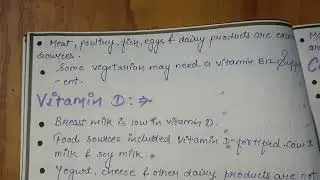 • Meat, poultry, fish, eggs & dairy products are
sources.
• Some vegetarian may need a vitamin B12
- ent.
Vitamin D :⇒
• Breast milk is low in vitamin D.
• Food sources included vitamin D-fortified cow's
milk & soy milk.
• Yogurt, cheese & other dairy products are not